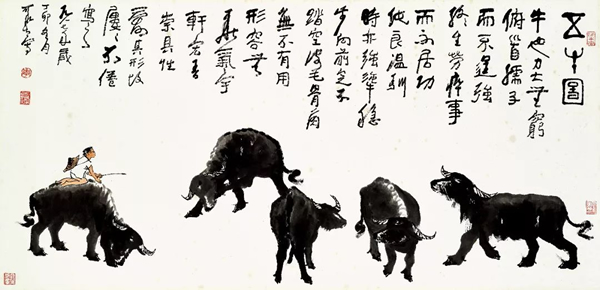 五牛圖
牛也力大無窮
俯首孺子
而不逞強
終生勞瘁事
而不居功
純良溫馴
時亦強犟穩
步向前足不
踏空皮毛骨角
無不有用
形容無
華氣宇
軒宏吾
崇其性
愛其形故
屢屢不倦
寫之
丁卯
可染